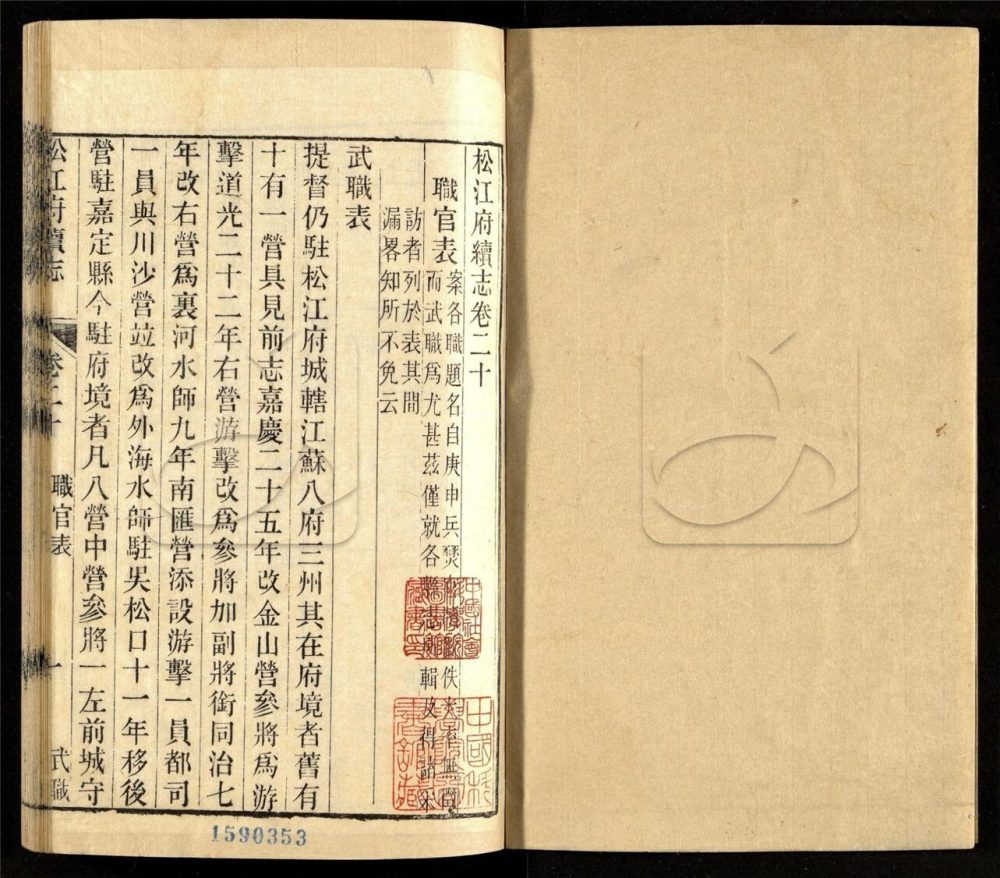 松江府續志卷二十
職官表
案各職題名自庚申兵燹
佚
而武職爲尤甚茲僅就各
輯及得諸采
訪者列於表其間
漏畧知所不免云
武職表
提督仍駐松江府城轄江蘇八府三州其在府境者舊有
十有一營具見前志嘉慶二十五年改金山營參將爲游
擊道光二十二年右營游擊改爲參將加副將銜同治七
年改右營爲裏河水師九年南匯營添設游擊一員都司
一員與川沙營竝改爲外海水師駐吳松口十一年移後
營駐嘉定縣今駐府境者凡八營中營參將一左前城守
松江府續志
卷二十
職官表
一
武職
1590353